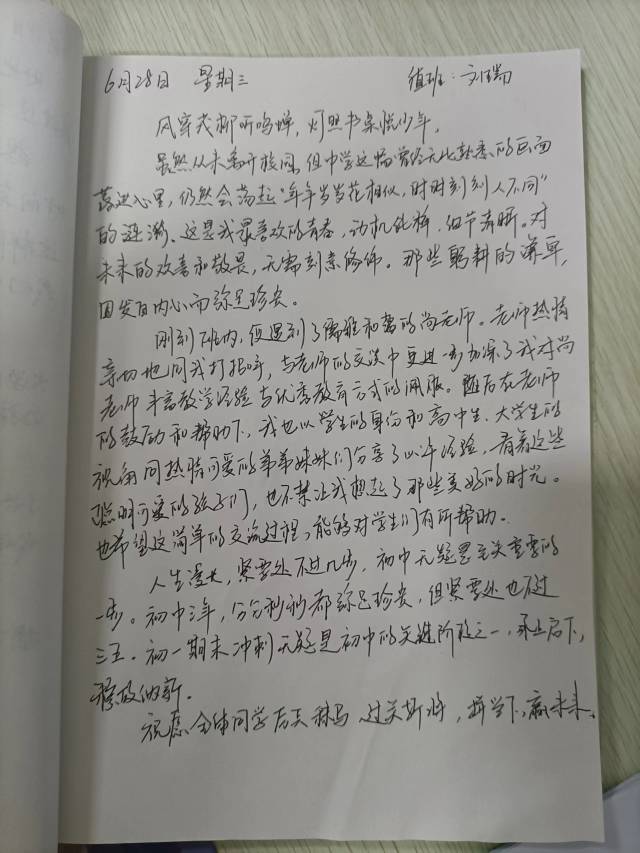 6月28日 星期三 值班：刘瑞
风穿茂柳听鸣蝉，灯照书桌悦少年。
虽然从未离开校园，但中学这幅曾经无比熟悉的画面
落进心里，仍然会荡起“年年岁岁花相似，时时刻刻人不同”
的涟漪。这是我最喜欢的青春，动机纯粹，细节清晰。对
未来的欢喜和敬畏，无需刻意修饰。那些躬耕的简单，
因发自内心而弥足珍贵。
刚到班内，便遇到了儒雅和蔼的尚老师。老师热情
亲切地同我打招呼，与老师的交谈中更进一步加深了我对尚
老师丰富教学经验与优秀教育方式的佩服。随后在老师
的鼓励和帮助下，我也以学生的身份和高中生、大学生的
视角同热情可爱的弟弟妹妹们分享了些许经验，看着这些
聪明可爱的孩子们，也不禁让我想起了那些美好的时光。
也希望这简单的交流过程，能够对学生们有所帮助。
人生漫长，紧要处不过几步，初中无疑是至关重要的
一步。初中三年，分分秒秒都弥足珍贵，但紧要处也不过
三五。初一期末冲刺无疑是初中的关键阶段之一，承上启下，
推陈纳新。
祝愿全体同学厉兵秣马，过关斩将，拼当下，赢未来。